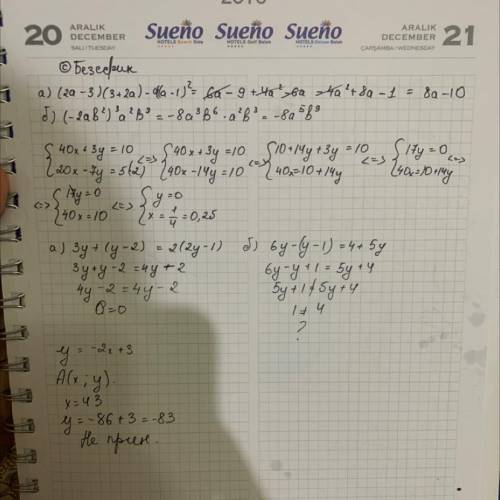 2016
20 ARALIK DECEMBER SALI/TUESDAY
Sueño HOTELS Beach Side
Sueño HOTELS Golf Belek
Sueño HOTELS Deluxe Belek
ARALIK DECEMBER ÇARŞAMBA/WEDNESDAY 21
© Безесрик
а) (2a-3)(3+2a)-(2a-1)² = 6a - 9 + 4a² - 6a - 4a² + 8a - 1 = 8a - 10
б) (-2ab²)³a²b³ = -8a³b⁶ · a²b³ = -8a⁵b⁹
{40x+3y=10 <=> {40x+3y=10 <=> {10+14y+3y=10 <=> {17y=0 <=>
{20x-7y=5(2) {40x-14y=10 {40x=10+14y {40x=10+14y
<=> {17y=0 <=> {y=0
{40x=10 {x=1/4=0,25
а) 3y+(y-2) = 2(2y-1) б) 6y-(y-1)=4+5y
3y+y-2=4y-2 6y-y+1=5y+4
4y-2=4y-2 5y+1≠5y+4
0=0 1≠4
?
y = -2x+3
A(x; y).
x=43
y=-86+3=-83
Не прин.